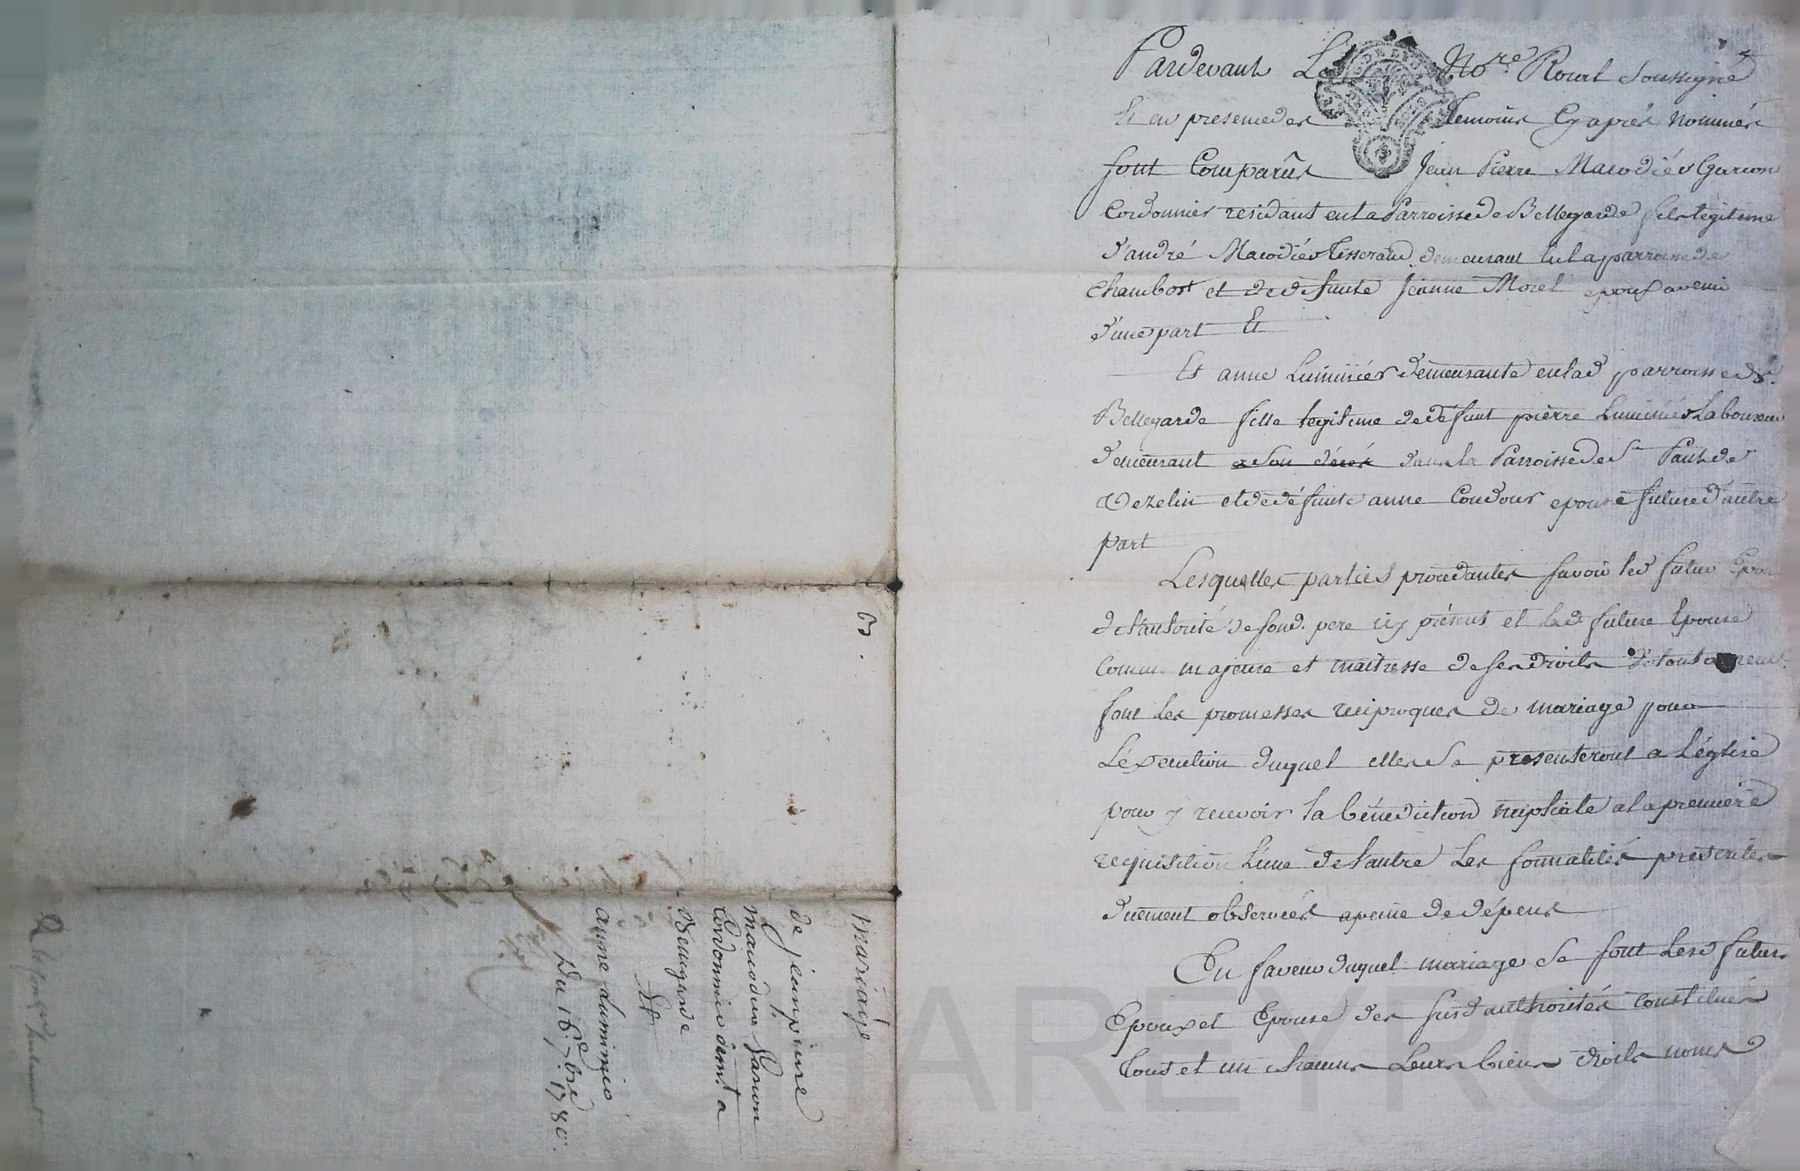 Pardevant Le No.re Royal Soussigné
Et en presence des temoins Cy après nommés
sont Comparûs Jean Pierre Maiodier Garcon
Cordonnier residant en la Parroisse de Bellegarde fils legitime
d'andré Maiodier tisserand demeurant en la parroisse de
Chambost et de défunte Jeanne Morel epoux avenir
d'une part Et
Et anne Luminier demeurante en lad parroisse de
Bellegarde fille legitime de défunt pierre Luminier Laboureur
demeurant a son décès dans la Parroisse de St Paul de
Vezelin et de défunte anne Coudour epouse future d'autre
part
Lesquelles parties procedantes savoir led futur Epoux
de l'autorité de sond. pere icy présent et lad. future Epouse
comme majeure et maitresse de ses droits volontairement
font les promesses reciproques de mariage pour
L'éxecution duquel elles se presenteront a L'église
pour y recevoir la bénédiction nuptiale a la premiere
requisition L'une de l'autre Les formalités prescrites
duement observées a peine de dépens
En faveur duquel mariage se sont Lesd futurs
Epoux et Epouse des susd authorités constitués
Tous et un chacuns Leurs biens droits noms
3.
mariage
de jean pierre
maiodier Garcon
Cordonnier dem.t a
Bellegarde
Et
anne luminier
Du 16 7bre 1780.